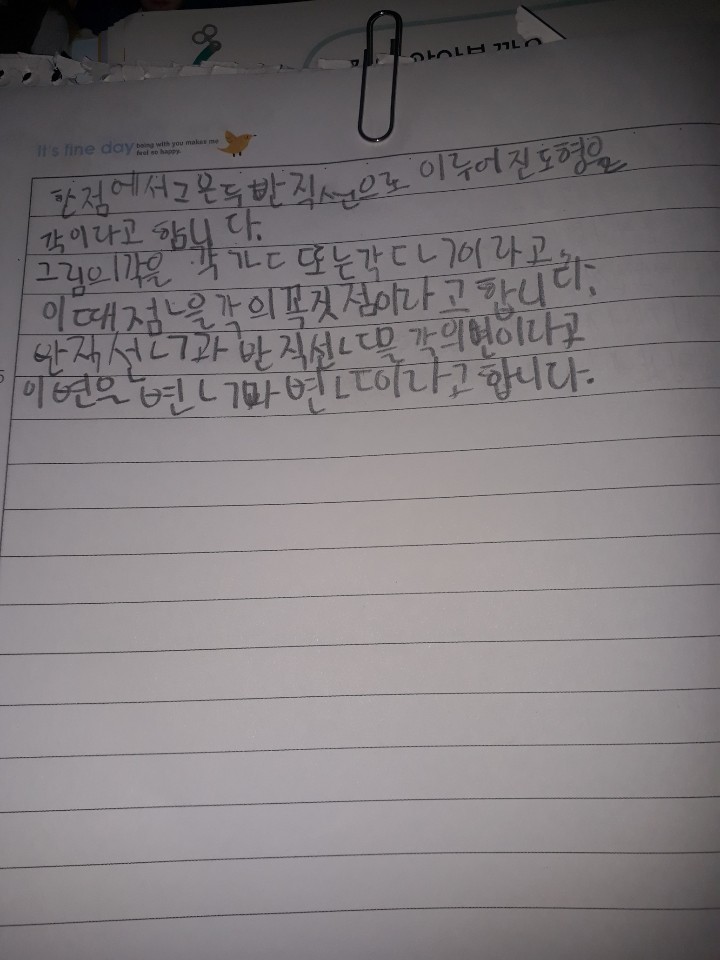 it's fine day being with you makes me
feel so happy.
한점에서그은두반직선으로 이루어진도형을
각이라고 합니다.
그림의각을 각ㄱㄴㄷ 또는각ㄷㄴㄱ이라고,
이때점ㄴ을각의꼭짓점이라고합니다.
반직선ㄴㄱ과 반직선ㄴㄷ을 각의변이라고
이변을 변ㄴㄱ과 변ㄴㄷ이라고합니다.